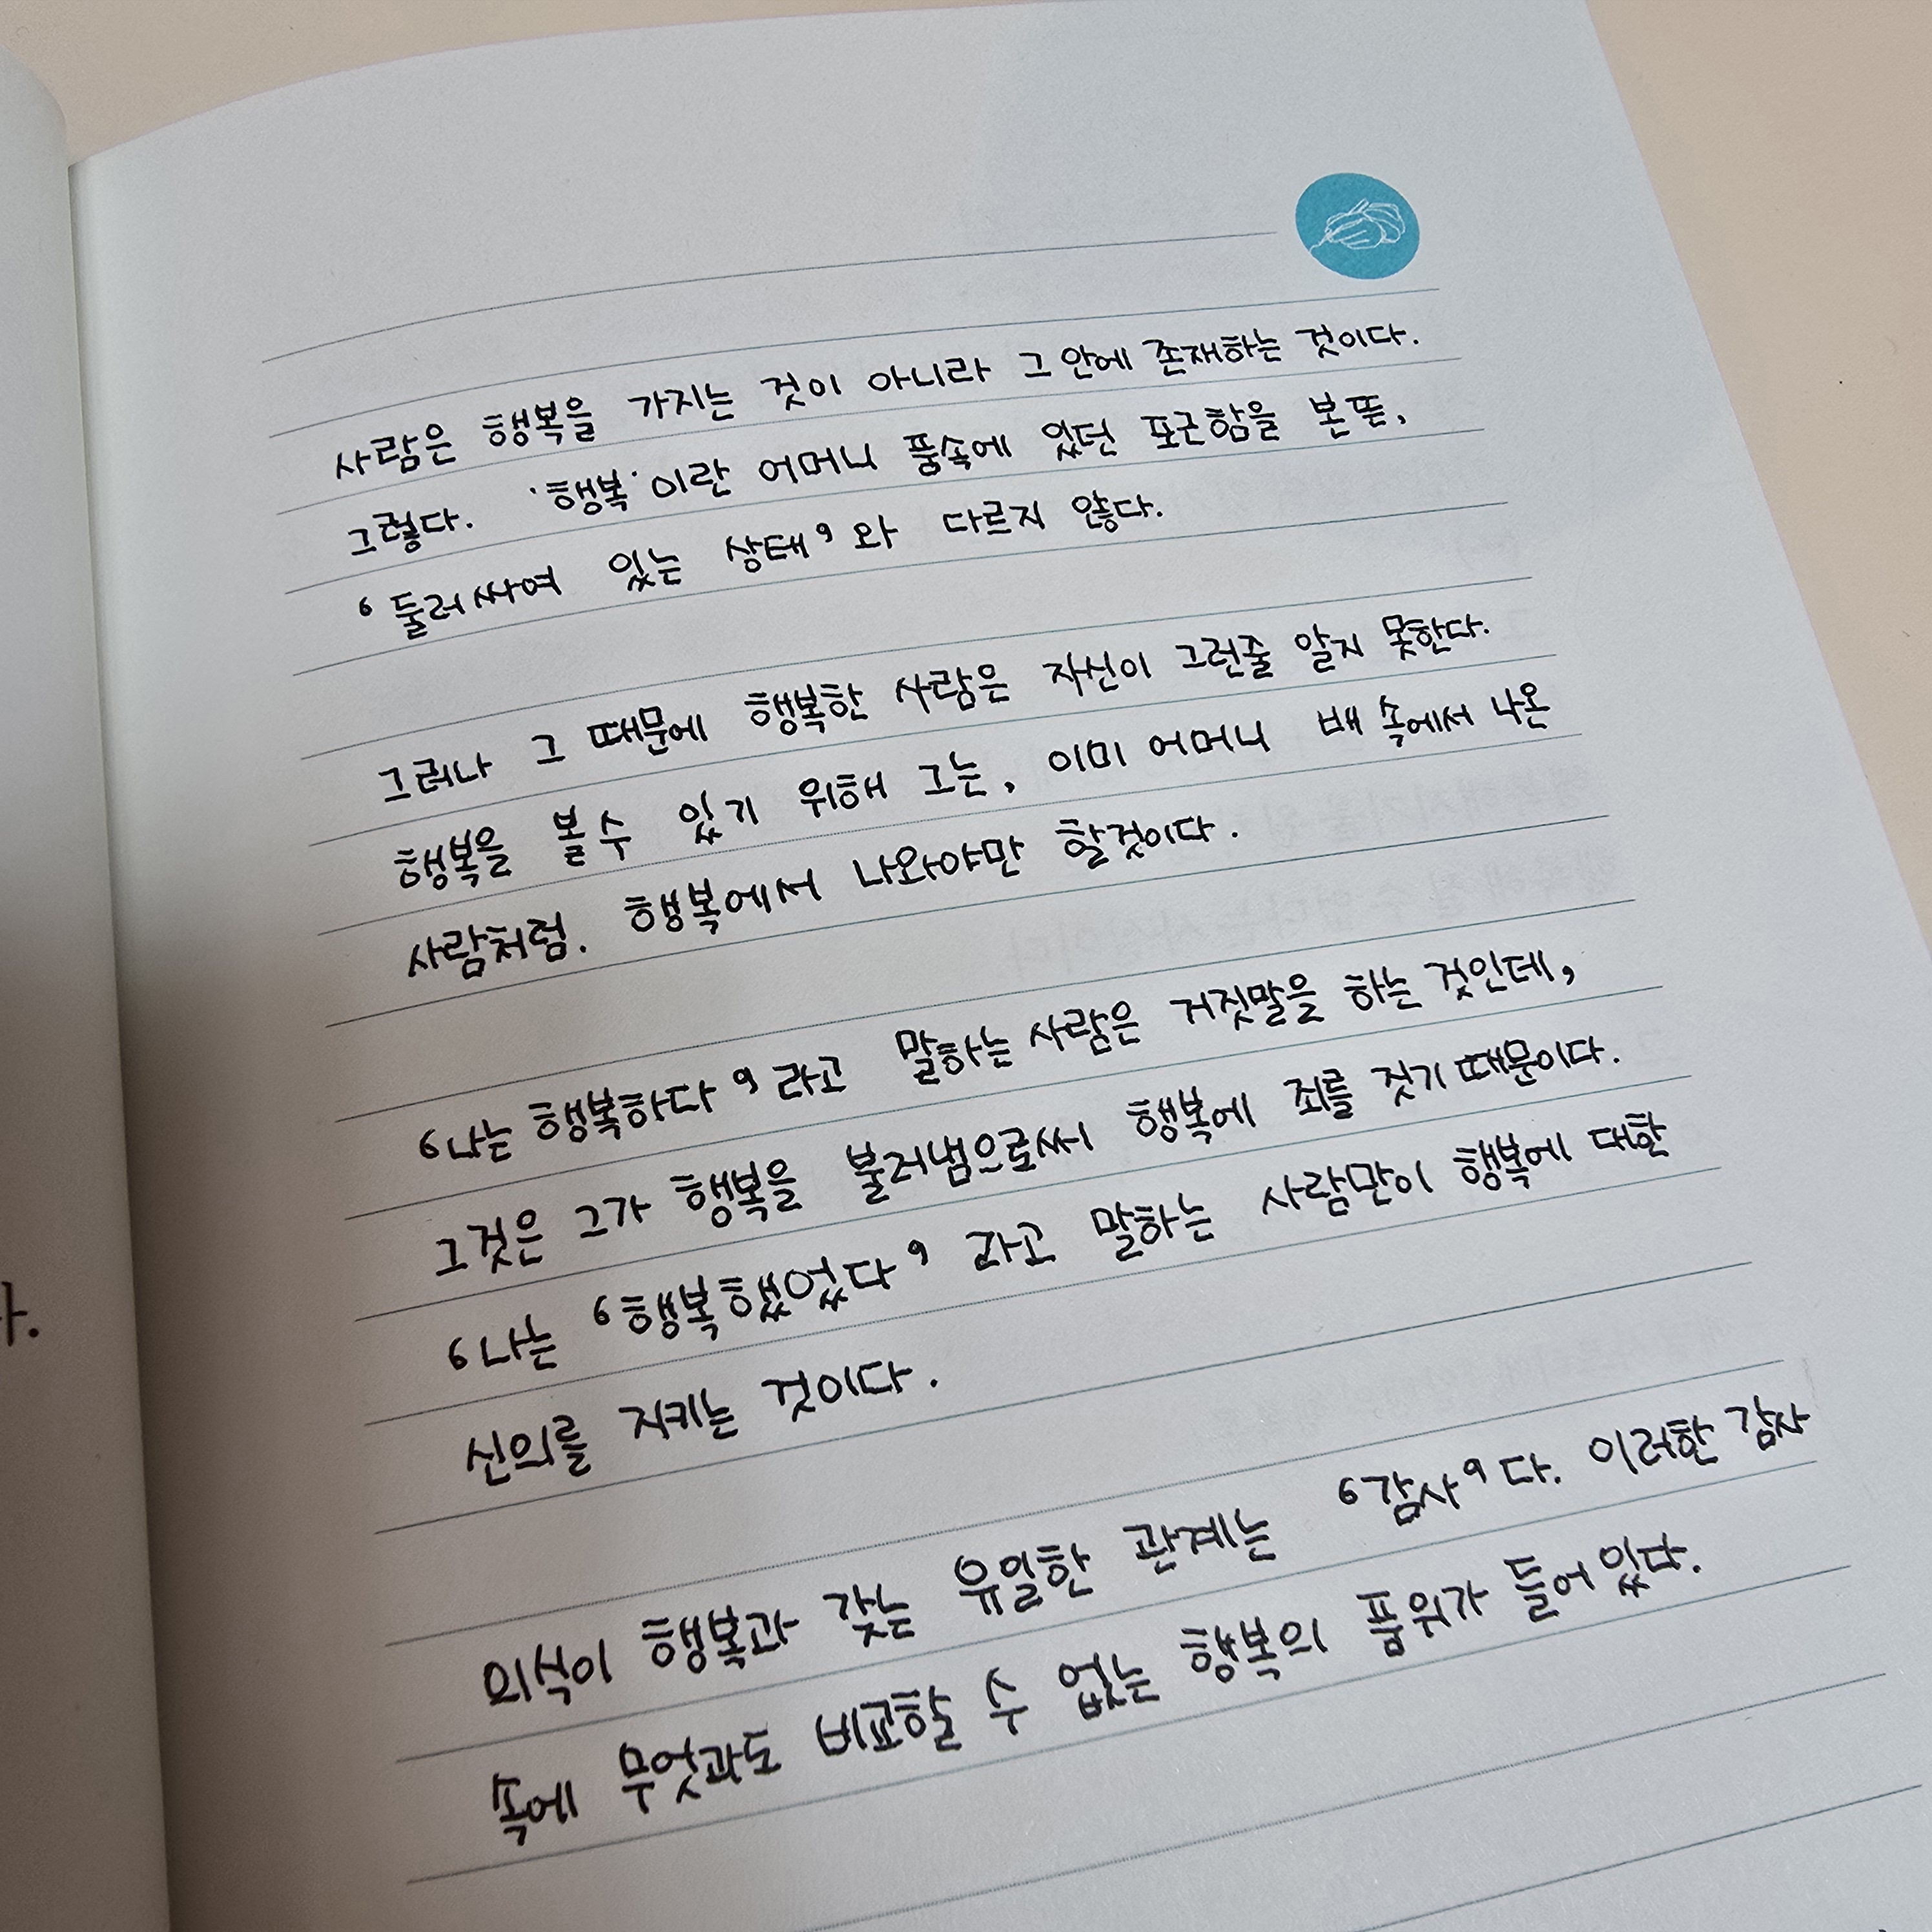 사람은 행복을 가지는 것이 아니라 그 안에 존재하는 것이다.
그렇다. '행복'이란 어머니 품속에 있던 포근함을 본뜬,
'둘러싸여 있는 상태'와 다르지 않다.
그러나 그 때문에 행복한 사람은 자신이 그런줄 알지 못한다.
행복을 볼 수 있기 위해 그는, 이미 어머니 배 속에서 나온
사람처럼. 행복에서 나와야만 할것이다.
'나는 행복하다'라고 말하는 사람은 거짓말을 하는 것인데,
그것은 그가 행복을 불러냄으로써 행복에 죄를 짓기 때문이다.
'나는 '행복했었다' 라고 말하는 사람만이 행복에 대한
신의를 지키는 것이다.
의식이 행복과 갖는 유일한 관계는 '감사'다. 이러한 감사
속에 무엇과도 비교할 수 없는 행복의 품위가 들어있다.